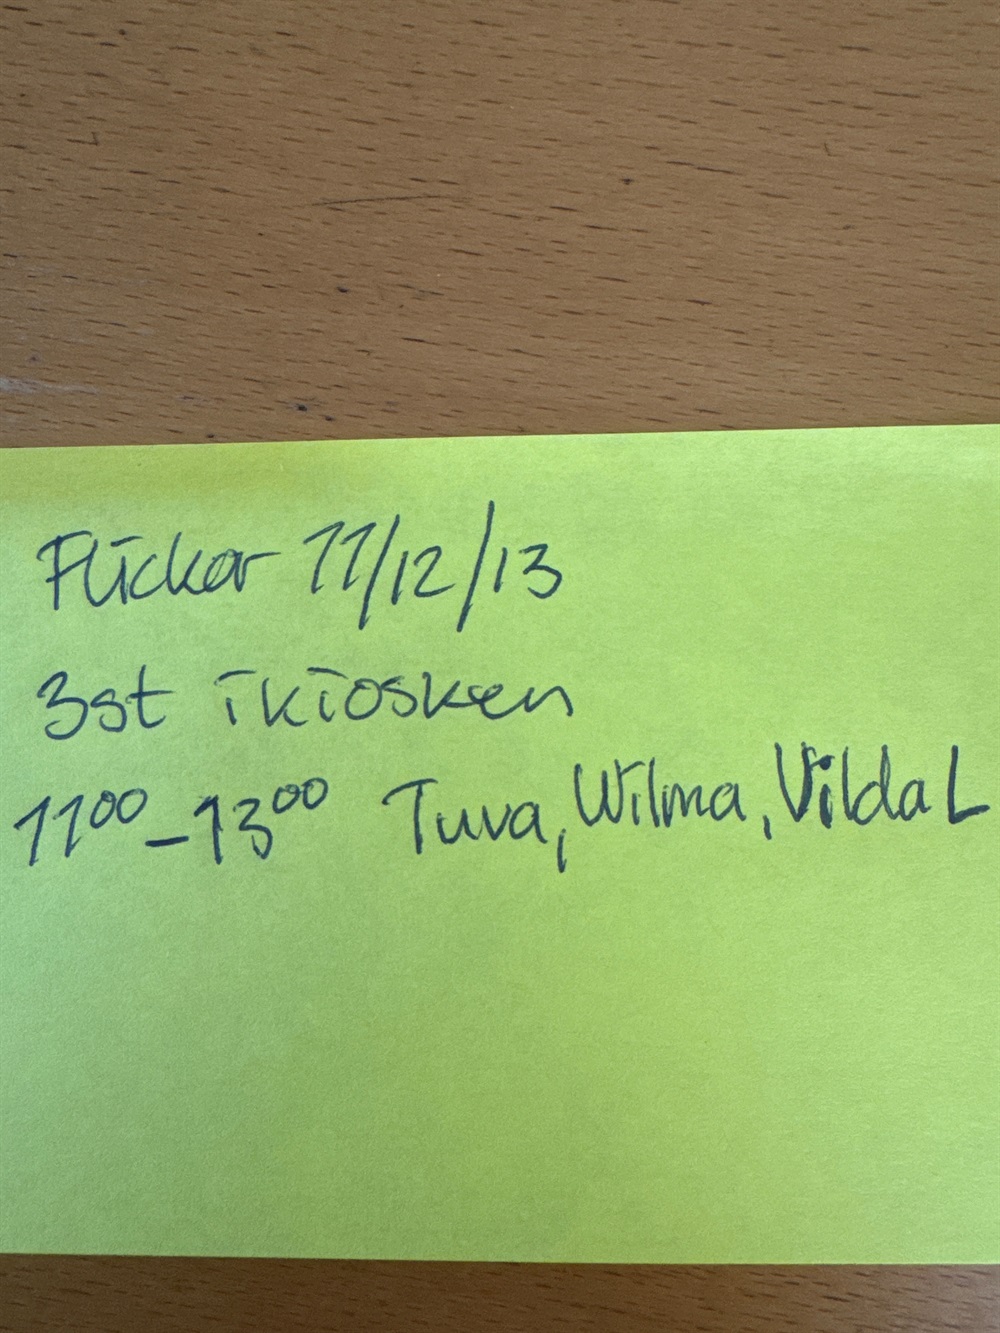 Flickor 11/12/13
3st i kiosken
11⁰⁰-13⁰⁰ Tuva, Wilma, Vilda L